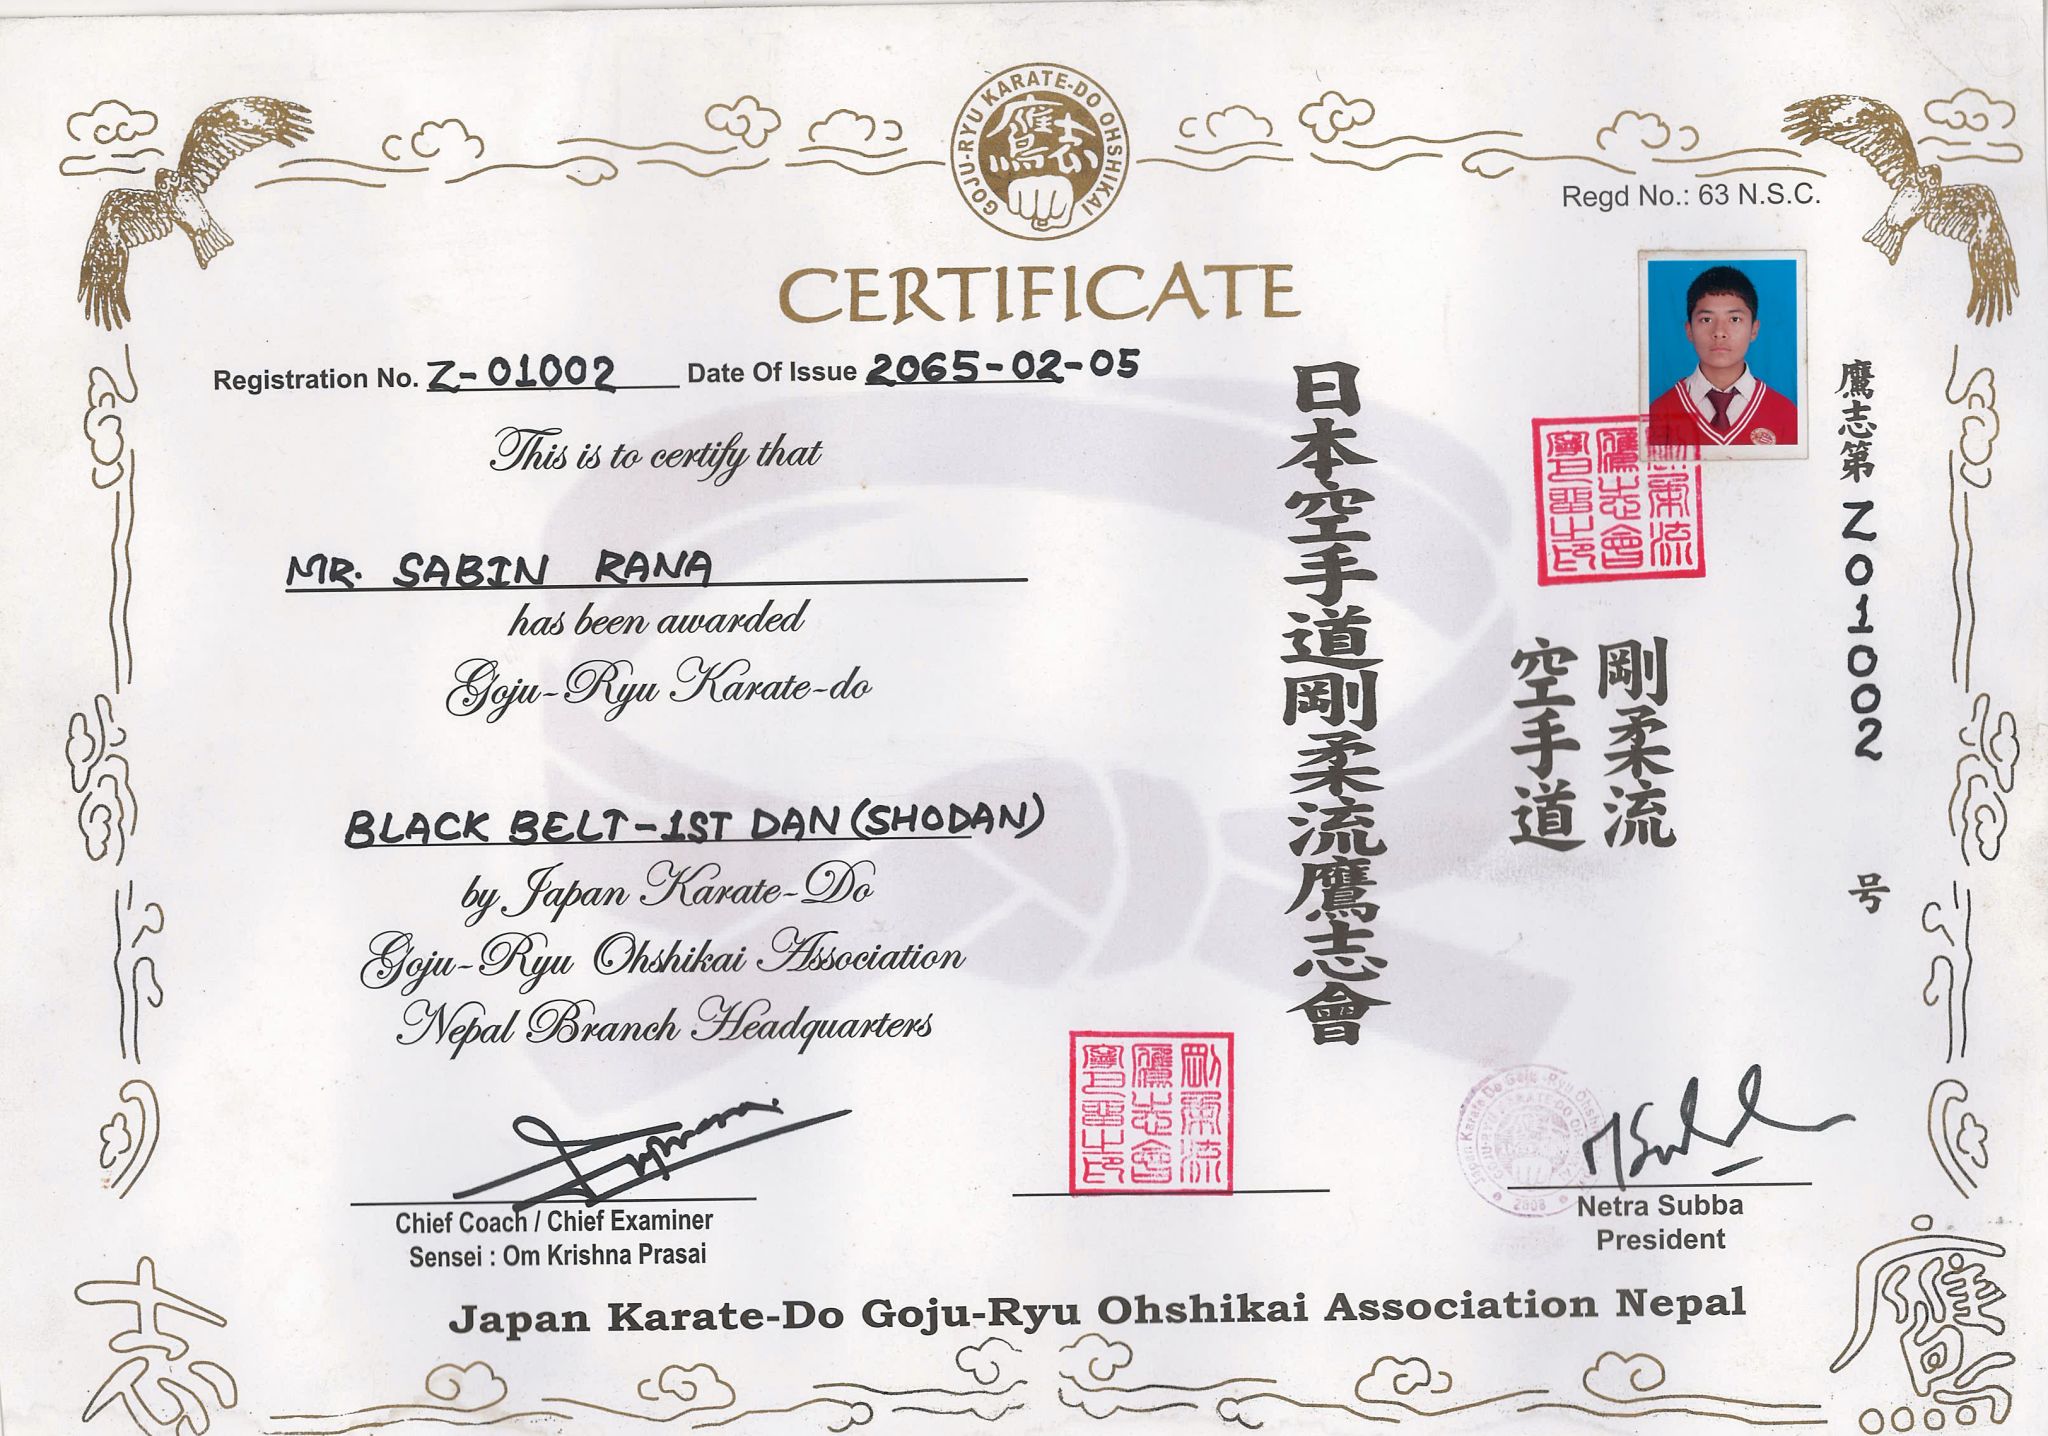 GOJU-RYU KARATE-DO OHSHIKAI
鷹志
Regd No.: 63 N.S.C.
CERTIFICATE
Registration No. Z-01002 Date Of Issue 2065-02-05
This is to certify that
MR. SABIN RANA
has been awarded
Goju-Ryu Karate-do
BLACK BELT-1ST DAN (SHODAN)
by Japan Karate-Do
Goju-Ryu Ohshikai Association
Nepal Branch Headquarters
日本空手道剛柔流鷹志會
剛柔流
空手道
鷹志第Z01002号
剛柔流
鷹志會
Chief Coach / Chief Examiner
Sensei : Om Krishna Prasai
剛柔流
鷹志會
Netra Subba
President
Japan Karate-Do Goju-Ryu Ohshikai Association Nepal
志
鷹